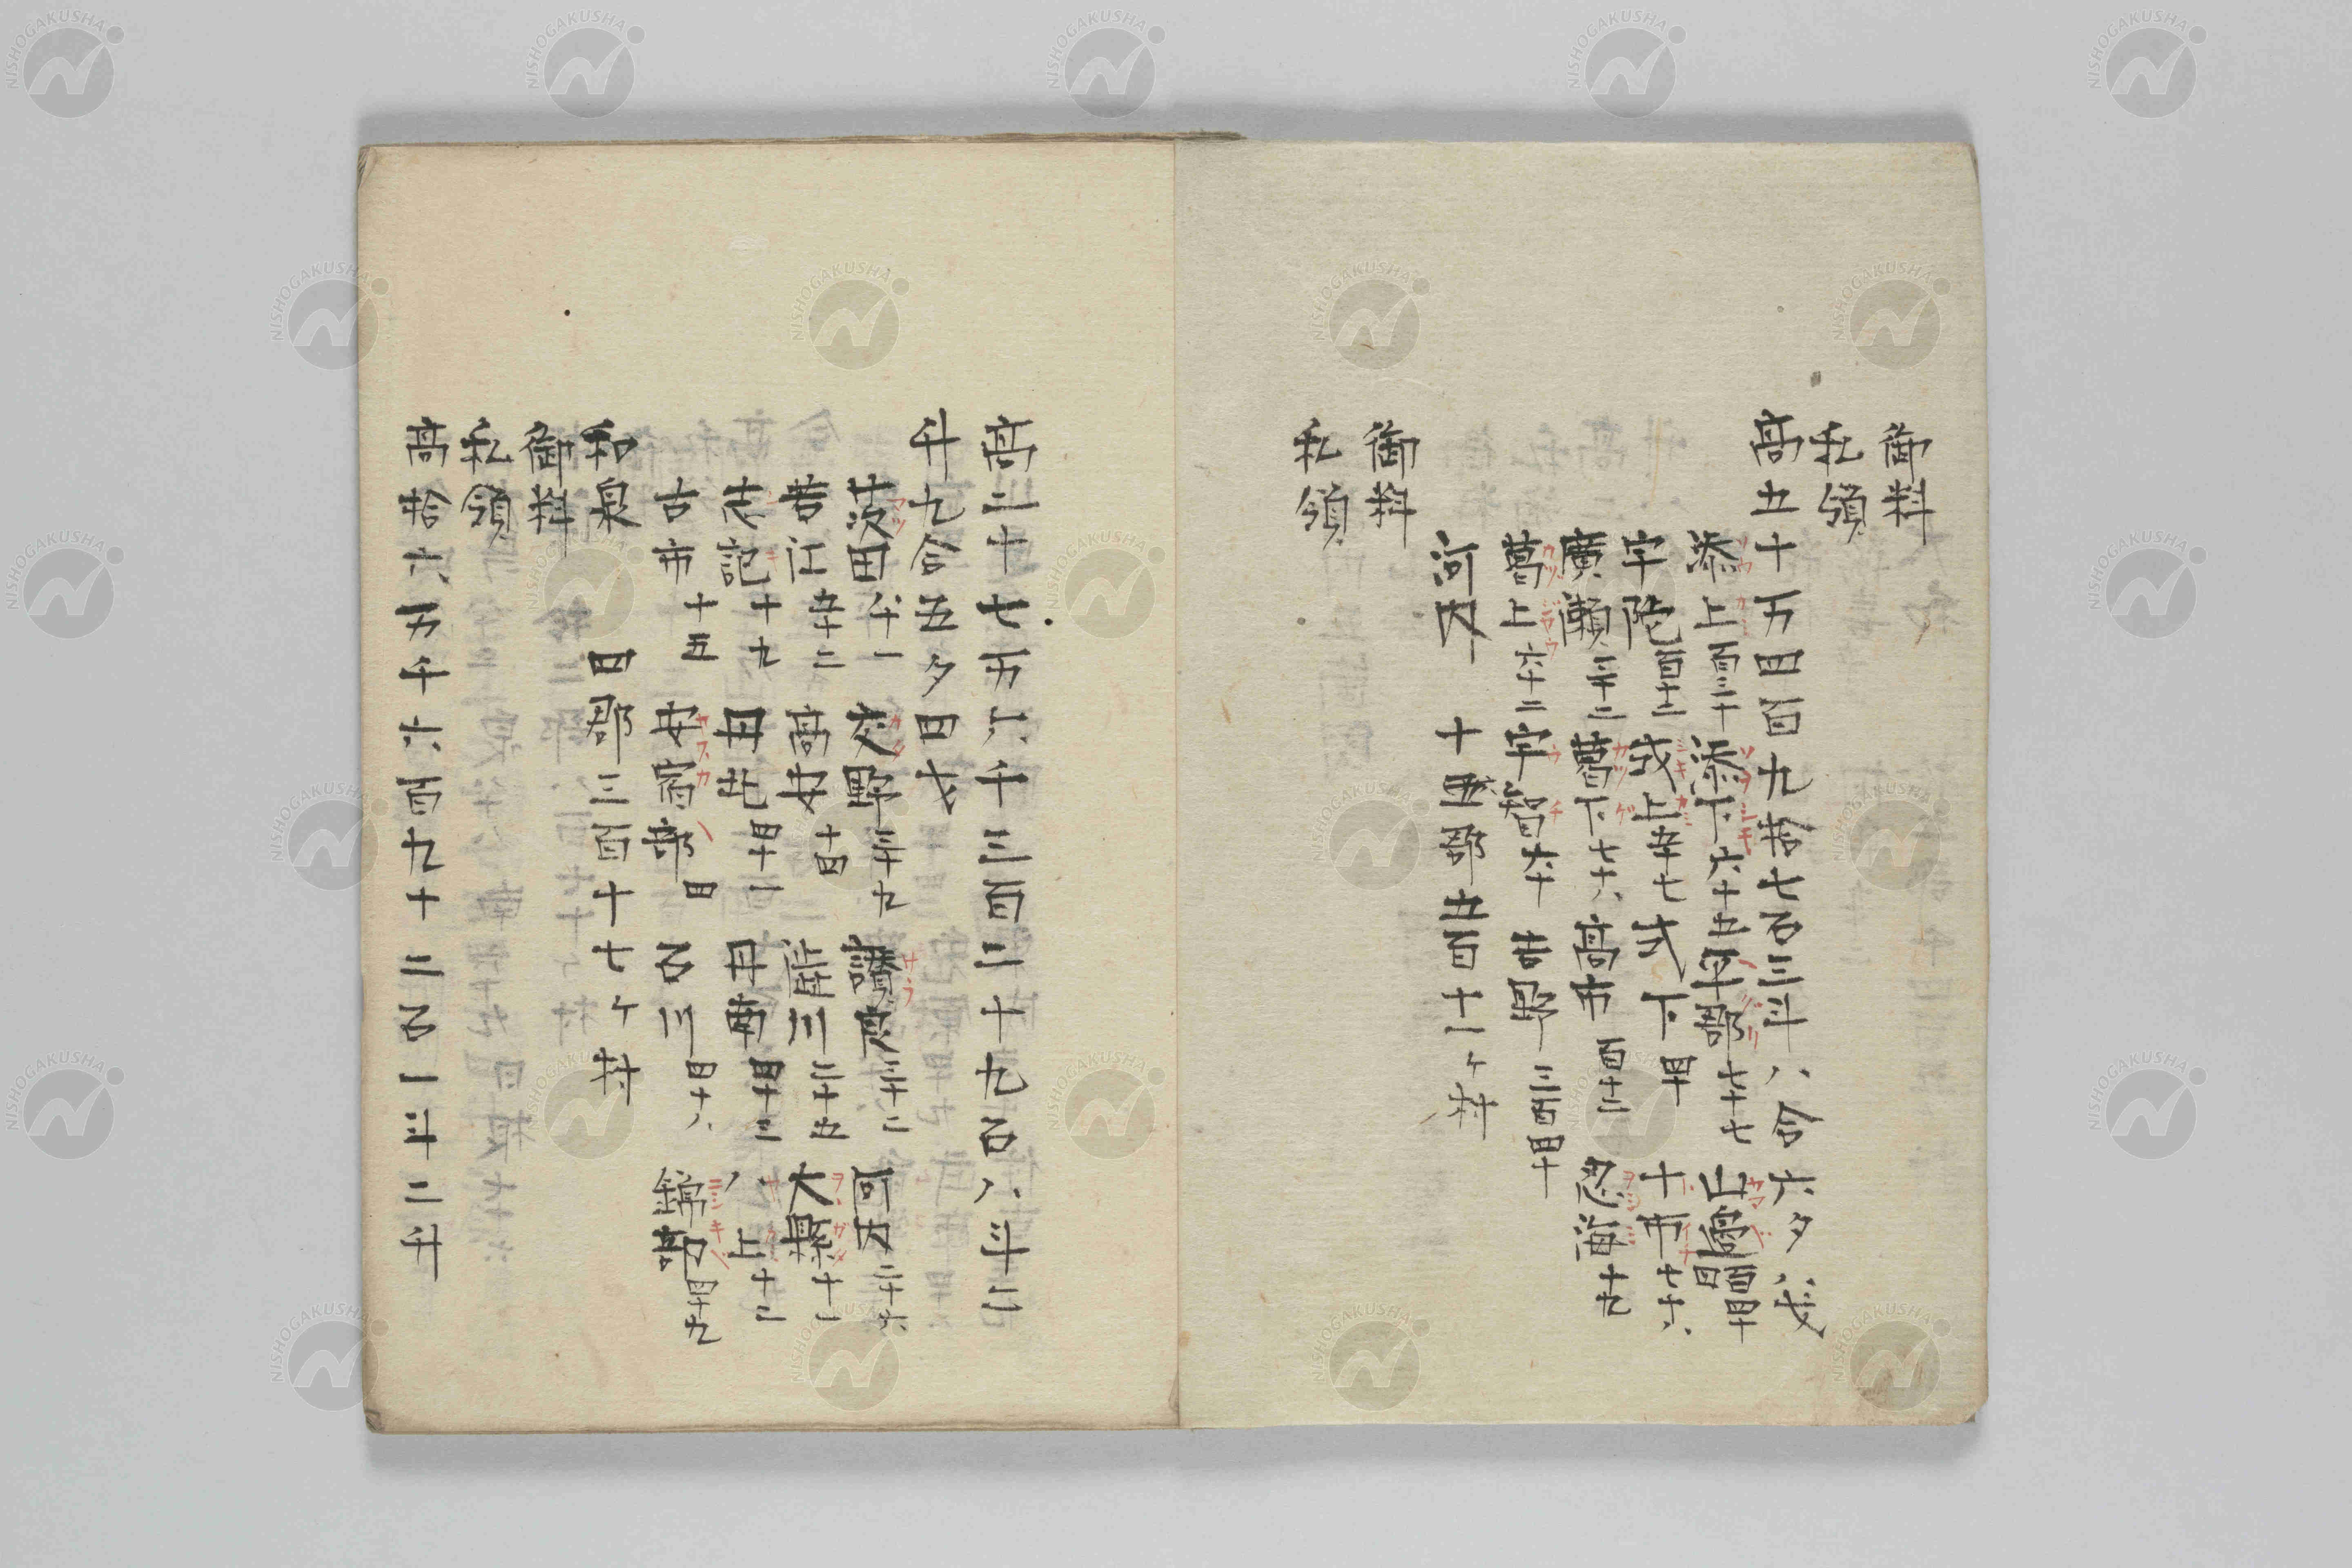 御料
私領
高五十万四百九拾七石三斗八合六夕八戋
添上百三十添下六十五平郡七十七山邉百四十四
宇陀百十二戍上五十七弍下四十十市七十六
廣瀬三十二葛下七十八高市百十三忍海十九
葛上六十二宇智六十吉野二百四十
河内　十五郡五百十一ヶ村
御料
私領
高二十七万六千三百三十九石八斗二
升九合五夕四才
茨田八十一交野三十九讃良三十二河内二十六
若江五十二高安十四澁川二十五大縣十一
志記十九丹北四十一丹南四十三八上十二
古市十五安宿部四石川四十八錦部四十九
和泉　四郡三百十七ヶ村
御料
私領
高拾六万千六百九十二石一斗二升